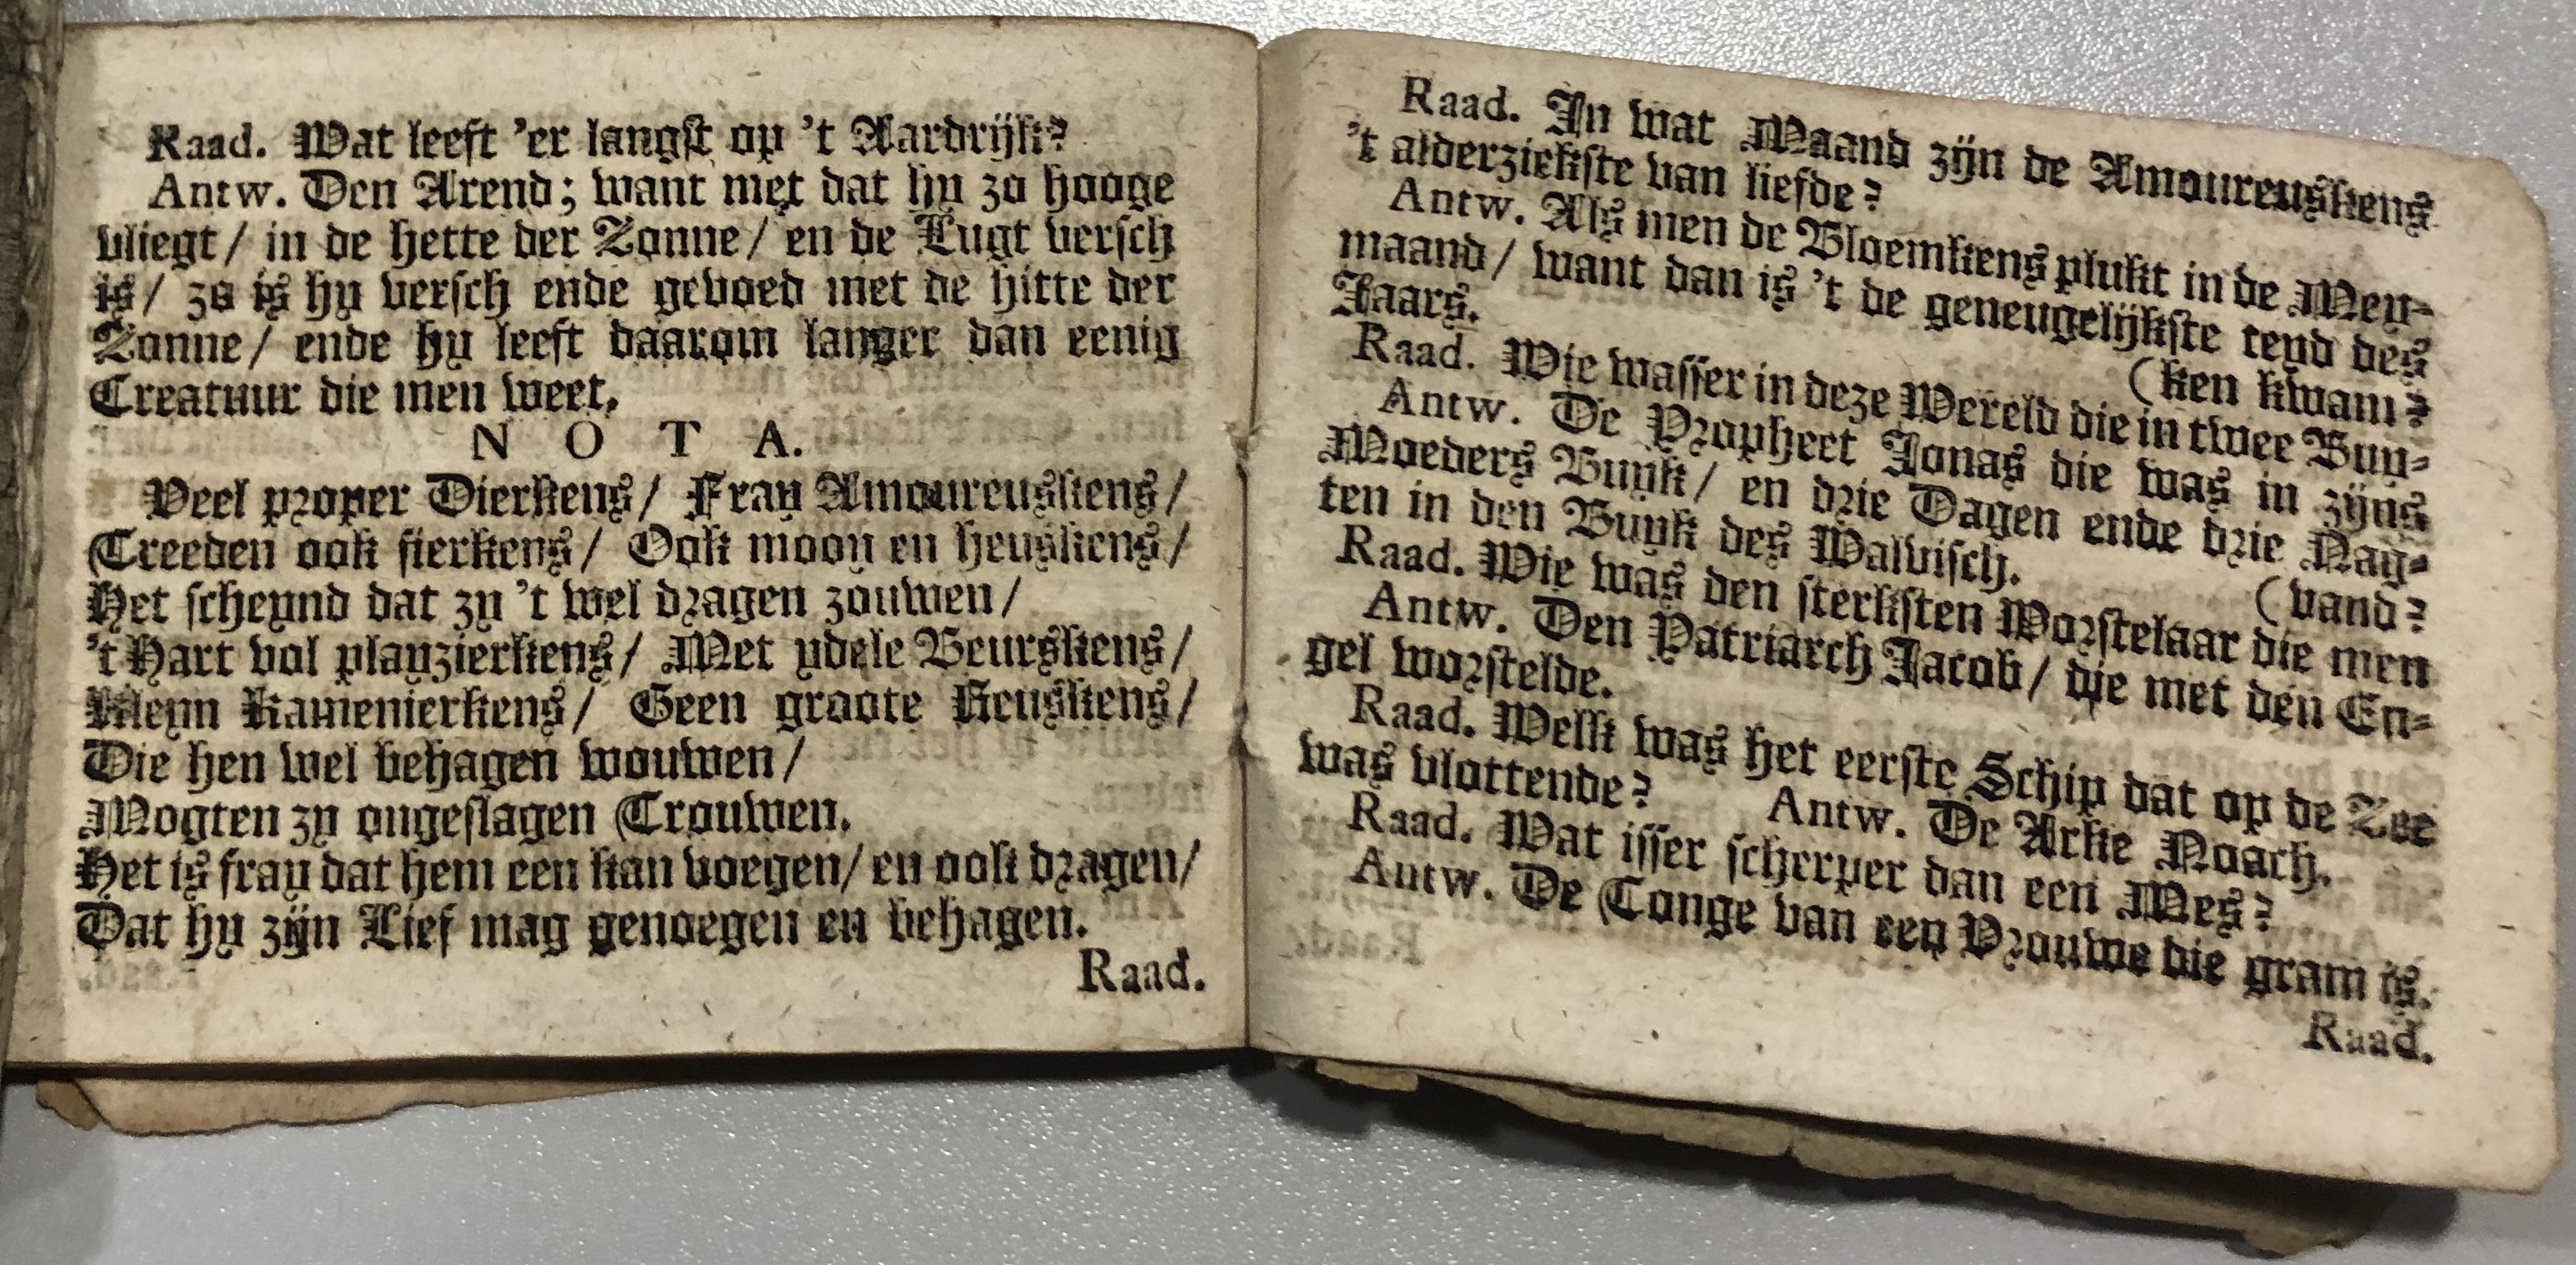 Raad. Wat leeft 'er langst op 't Aardrijk?
Antw. Den Arend; want met dat hy zo hooge
vliegt/ in de hette der Zonne/ en de Lugt versch
is/ zo is hy versch ende gevoed met de hitte der
Zonne/ ende hy leeft daarom langer dan eenig
Creatuur die men weet.
N O T A.
Veel proper Dierkens/ Fray Amoureuskens/
Treeden ook fierkens/ Ook mooy en heuskens/
Het scheynd dat zy 't wel dragen zouwen/
't Hart vol playzierkens/ Met ydele Beurskens/
Kleyn Kamenierkens/ Geen groote Keuskens/
Die hen wel behagen wouwen/
Mogten zy ongeslagen Trouwen.
Het is fray dat hem een kan voegen/ en ook dragen/
Dat hy zijn Lief mag genoegen en behagen.
Raad.
Raad. In wat Maand zijn de Amoureuskens
't alderziekste van liefde?
Antw. Als men de Bloemkens plukt in de Mey-
maand/ want dan is 't de geneugelijkste teyd des
Jaars.
(ken kwam?
Raad. Wie wasser in deze Wereld die in twee Buy-
Antw. De Propheet Jonas die was in zijns
Moeders Buyk/ en drie Dagen ende drie Nag-
ten in den Buyk des Walvisch.
(vand?
Raad. Wie was den sterksten Worstelaar die men
Antw. Den Patriarch Jacob/ die met den En-
gel worstelde.
Raad. Welk was het eerste Schip dat op de Zee
was vlottende? Antw. De Arke Noach.
Raad. Wat isser scherper dan een Mes?
Antw. De Tonge van een Vrouwe die gram is.
Raad.